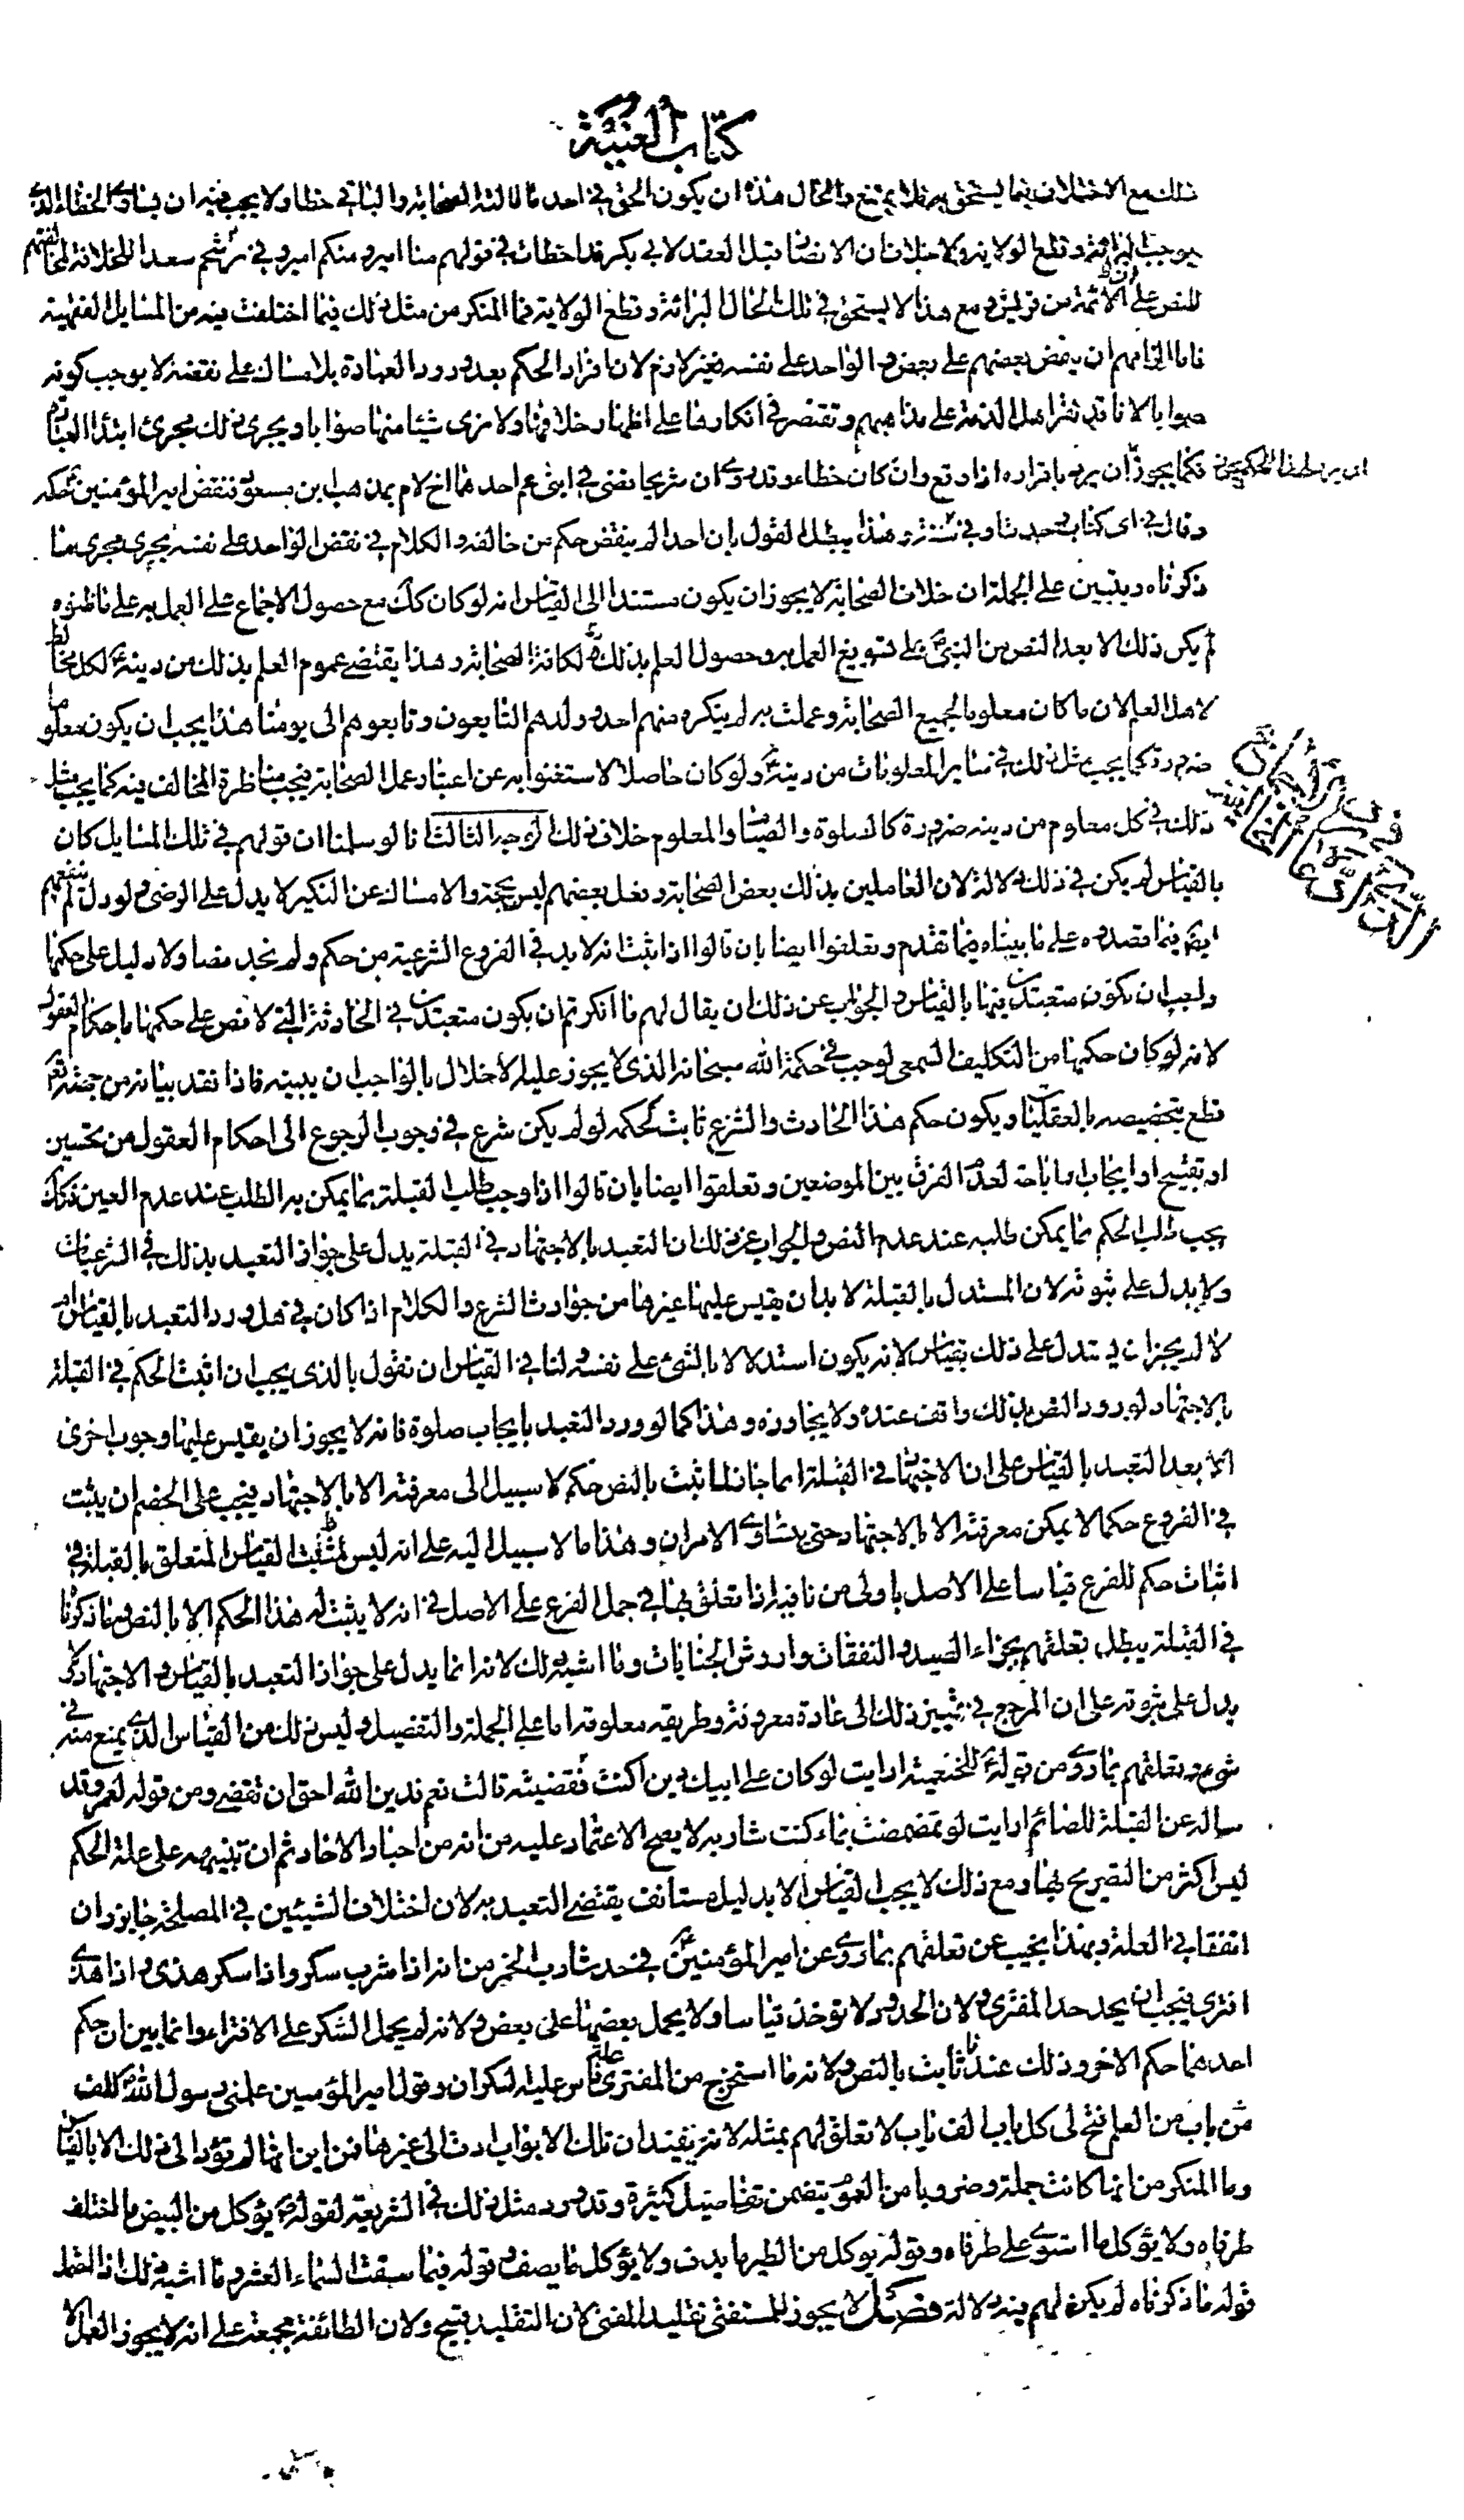 كتاب الغنية
ذلك مع الاختلاف فيما يستحق به فلا يمتنع والحال هذه ان يكون الحق في احد ما قالته الصحابة والباقي خطا ولا يجب فيه ان يساوي الخطاء الذي
يوجب البرائة وقطع الولاية ولا خلاف ان الانصار قبل العقد لابي بكر قد اخطات في قولهم منا امير ومنكم امير وفي ترشيحهم سعدا للخلافة لمخالفتهم
للنص على ان الائمة من قريش ومع هذا لا يستحق في تلك الحال البرائة وقطع الولاية فما المنكر من مثل ذلك فيما اختلفت فيه من المسايل الفقهية
فاما الزامهم ان ينقض بعضهم على بعض والواحد على نفسه فغير لازم لان اقرار الحكم بعد ورود العبادة بالامساك على نقضه لا يوجب كونه
صوابا لانا قد نقر اهل الذمة على مذاهبهم ونقتصر في انكارها على اظهار خلافها ولا نرى شيئا منها صوابا ويجري ذلك مجرى ابتداء العبادة
فكما يجوز ان يرد باقراره اذا وقع وان كان خطاء وقد روي ان شريحا قضى في ابني عم احدهما اخ لام بمذهب ابن مسعود فنقض امير المؤمنين حكمه
وقال في اي كتاب وجدت او في سنة وهذا يبطل القول بان احدا لم ينقض حكم من خالفه والكلام في نقض الواحد على نفسه يجري مجرى ما
ذكرناه ويتبين على الجملة ان خلاف الصحابة لا يجوز ان يكون مستندا الى القياس انه لو كان كك مع حصول الاجماع على العمل به على ما ظنوه
لم يكن ذلك الا بعد النص من النبي على تسويغ العمل به وحصول العلم بذلك لكافة الصحابة وهذا يقتضي عموم العلم بذلك من دينه لكل مخالط
لاهل العلم لان ما كان معلوما لجميع الصحابة وعملت به لم ينكره منهم احد ولدهم التابعون وتابعوهم الى يومنا هذا يجب ان يكون معلوما
ضرورة كما يجب مثل ذلك في ساير المعلومات من دينه ولو كان حاصلا لاستغنوا به عن اعتبار عمل الصحابة فيجب مناظرة المخالف فيه كما يجب مثل
ذلك في كل معلوم من دينه ضرورة كالصلوة والصيام والمعلوم خلاف ذلك الوجه الثالث انا لو سلمنا ان قولهم في تلك المسايل كان
بالقياس لم يكن في ذلك دلالة لان العاملين بذلك بعض الصحابة وفعل بعضهم ليس بحجة والامساك عن النكير لا يدل على الرضى ولو دل لم ينفعهم
ايضا فيما قصدوه على ما بيناه فيما تقدم وتعلقوا ايضا بان قالوا اذا ثبت انه لا بد في الفروع الشرعية من حكم ولم نجد نصا ولا دليل على حكمها
وجب ان نكون متعبدين فيها بالقياس والجواب عن ذلك ان يقال لهم ما انكرتم ان يكون متعبدين في الحادثة التي لا نص على حكمها باحكام العقول
لانه لو كان حكمها من التكليف السمعي لوجب في حكمة الله سبحانه الذي لا يجوز عليه الاخلال بالواجب ان يبينه فاذا فقد بيانه من جهته تعالى
قطع بتخصيصه بالعقليات ويكون حكم هذا الحادث والشرع ثابت كحكمه لو لم يكن شرع في وجوب الرجوع الى احكام العقول من تحسين
او تقبيح او ايجاب او اباحة لعدم الفرق بين الموضعين وتعلقوا ايضا بان قالوا اذا وجب طلب القبلة بما يمكن به الطلب عند عدم العين فكذلك
يجب طلب الحكم مما يمكن طلبه عند عدم النص والجواب عن ذلك ان التعبد بالاجتهاد في القبلة يدل على جواز التعبد بذلك في الشرعيات
ولا يدل على ثبوته لان المستدل بالقبلة لا بد ان يقيس عليها غيرها من حوادث الشرع والكلام اذا كان في هل ورد التعبد بالقياس ام
لا لم يجز ان يستدل على ذلك بقياس لانه يكون استدلالا بالشئ على نفسه ولنا في القياس ان نقول بالذي يجب ان اثبت الحكم في القبلة
بالاجتهاد لورود النص بذلك واقف عنده ولا يجاوزه وهذا كما لو ورد التعبد بايجاب صلوة فانه لا يجوز ان يقيس عليها وجوب اخرى
الا بعد التعبد بالقياس على ان الاجتهاد في القبلة انما جاز لما ثبت بالنص حكم لا سبيل الى معرفته الا بالاجتهاد فيجب على الخصم ان يثبت
في الفروع حكما لا يمكن معرفته الا بالاجتهاد حتى يتساوي الامران وهذا ما لا سبيل اليه على انه ليس لمثبت القياس المتعلق بالقبلة في
اثبات حكم للفرع قياسا على الاصل باولى من نافيه اذا تعلق بها في حمل الفرع على الاصل في انه لا يثبت له هذا الحكم الا بالنص وبما ذكرنا
في القبلة يبطل تعلقهم بجزاء الصيد والنفقات واروش الجنايات وما اشبه ذلك لانه انما يدل على جواز التعبد بالقياس والاجتهاد ولا
يدل على ثبوته على ان المرجع في تمييز ذلك الى عادة معروفة وطريقة معلومة اما على الجملة والتفصيل وليس ذلك من القياس الذي يمنع منه في
شئ وتعلقهم بما روي من قوله للخثعمية ارايت لو كان على ابيك دين اكنت تقضيه قالت نعم فدين الله احق ان تقضي ومن قوله لعمر وقد
ساله عن القبلة للصائم ارايت لو تمضمضت بماء كنت شاربه لا يصح الاعتماد عليه من انه من اخبار الاحاد ثم ان تنبيهه على علة الحكم
ليس اكثر من التصريح بها ومع ذلك لا يجب القياس الا بدليل مستانف يقتضي التعبد به لان اختلاف الشيئين في المصلحة جايز وان
اتفقا في العلة وبهذا يجيب عن تعلقهم بما روي عن امير المؤمنين في حد شارب الخمر من انه اذا شرب سكر واذا سكر هذى واذا هذى
افترى فيجب ان يحد حد المفتري ولان الحدود لا توخذ قياسا ولا يحمل بعضها على بعض ولانه لم يحمل السكر على الافتراء وانما بين ان حكم
احدهما حكم الاخر وذلك عندنا ثابت بالنص ولانه ما استخرج من المفتري علة قاس عليه السكران وقول امير المؤمنين علمني رسول الله الف
باب من العلم فتح لي كل باب الف باب لا تعلق لهم بمثله لانه يفيد ان تلك الابواب ادت الى غيرها فمن اين انها لم تؤد الى ذلك الا بالقياس
وما المنكر من انها كانت جملة وضروبا من العموم يتضمن تفاصيل كثيرة وقد ورد مثل ذلك في الشريعة لقوله يؤكل من البيض ما اختلف
طرفاه ولا يؤكل ما استوى طرفاه وقوله يوكل من الطير ما يدف ولا يؤكل ما يصف وقوله فيما سقت السماء العشر وما اشبه ذلك اذا احتمل
قوله ما ذكرناه لم يكن لهم فيه دلالة فصل لا يجوز للمستفتي تقليد المفتي لان التقليد قبيح ولان الطائفة مجمعة على انه لا يجوز العمل الا